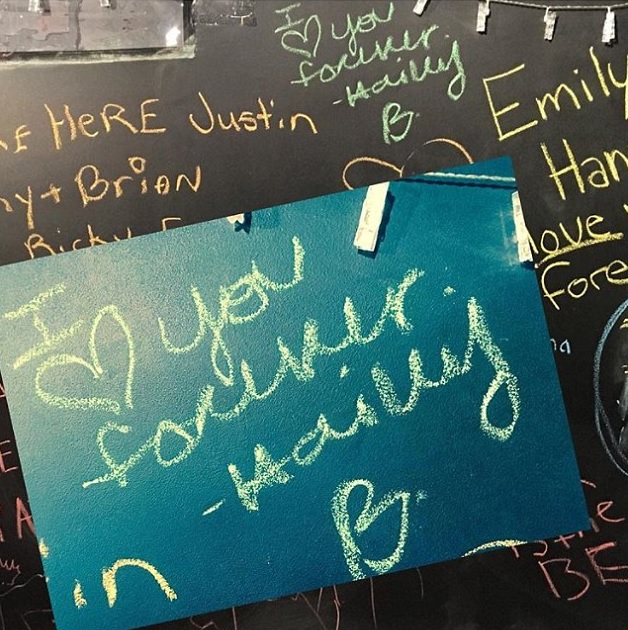 I ♡ you
forever.
-Hailey
B.
HERE Justin
y + Brian
Ricky
Emily
Han
love
Fore
I ♡ you
forever.
-Hailey
B.
in
the
BE